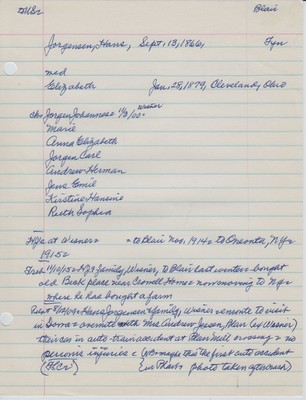 Blair
Jorgensen, Hans, Sept. 13, 1866, Fyn
med
Elizabeth Jan. 28, 1879, Cleveland, Ohio
Wisner
Marie
Anna Elizabeth
Jorgen Carl
Andrew Herman
Jens Emil
Kirstine Hansine
Ruth Sophia
at Wisner to Blair Nov. 1914 to Oneonta, NY
1915
family, Wisner, to Blair last winter bought
old Beck place near Crowell Home now moving to NY
where he has bought a farm
Hans Jorgensen family, Wisner enroute to visit
in Iowa enroute with Mrs. Andrew Jepsen, Blair (ex Wisner)
their car in auto-train accident at Blair Mill crossing no
serious injuries this the first auto accident
photo taken after crash)